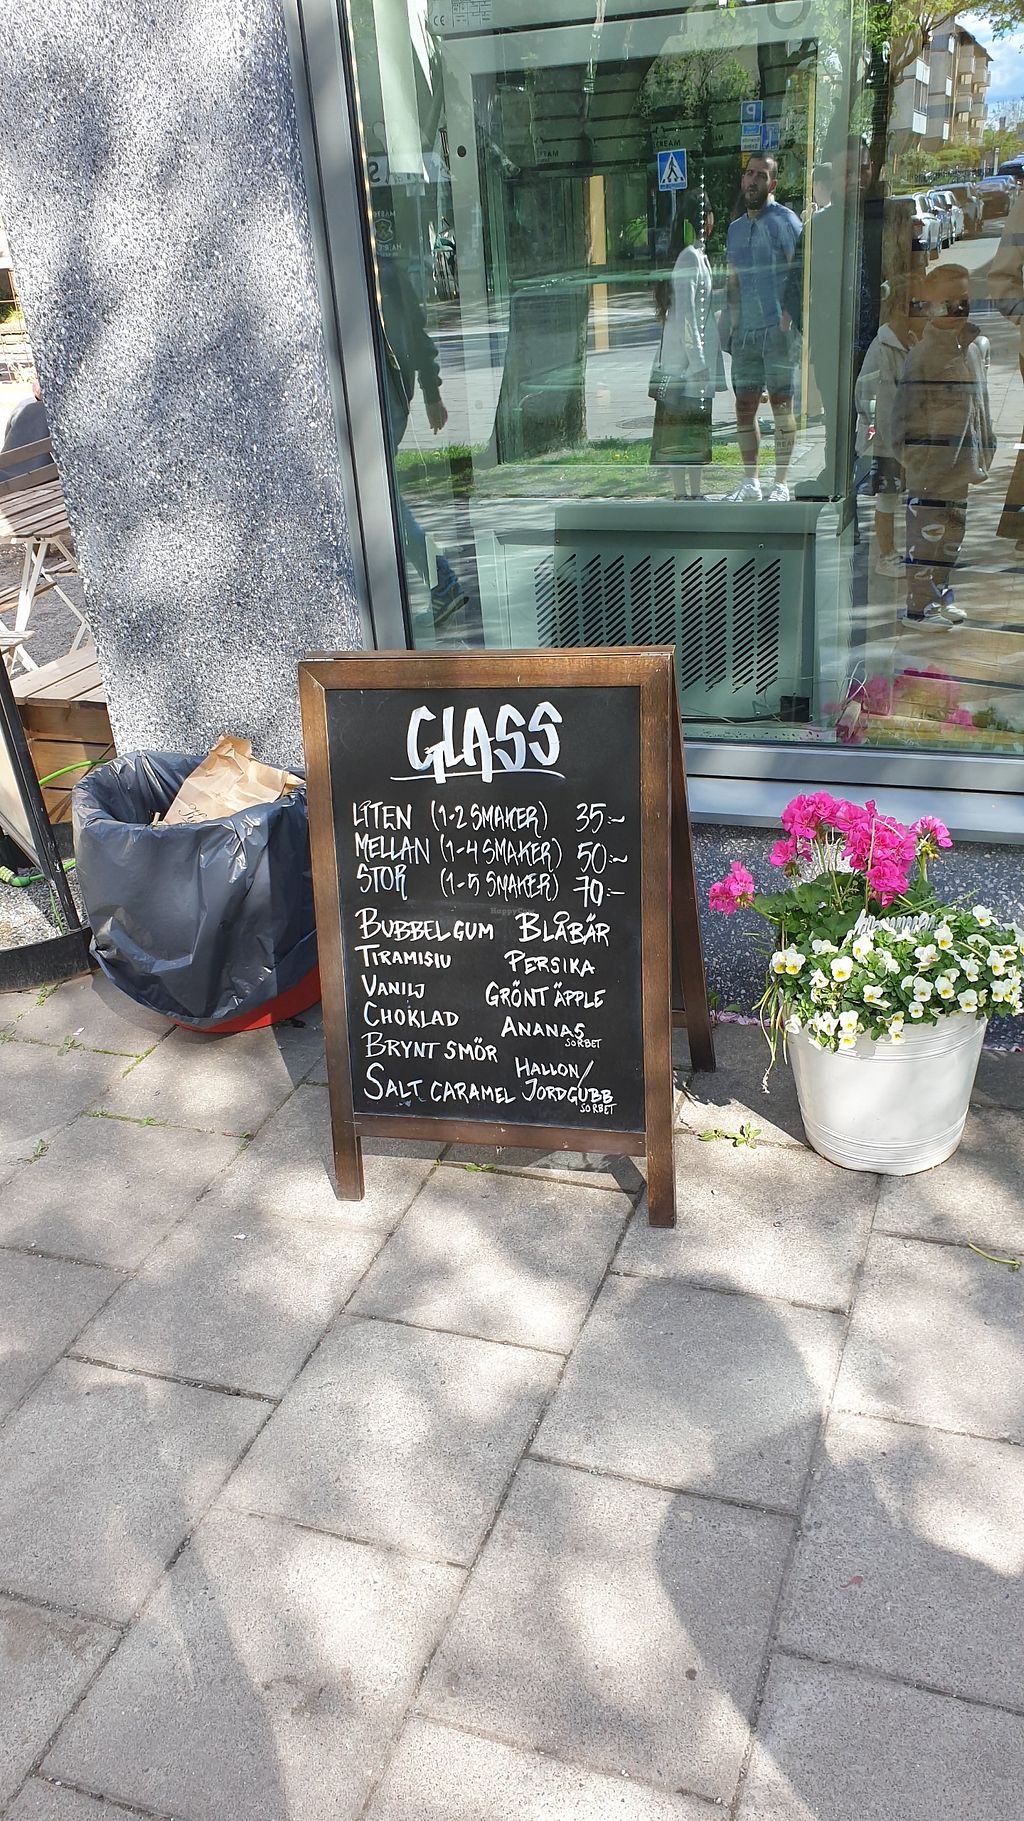 GLASS
LITEN (1-2 SMAKER) 35:-
MELLAN (1-4 SMAKER) 50:-
STOR (1-5 SMAKER) 70:-
BUBBELGUM BLÅBÄR
TIRAMISIU PERSIKA
VANILJ GRÖNT ÄPPLE
CHOKLAD ANANAS
SORBET
BRYNT SMÖR HALLON/
SALT CARAMEL JORDGUBB
SORBET
P